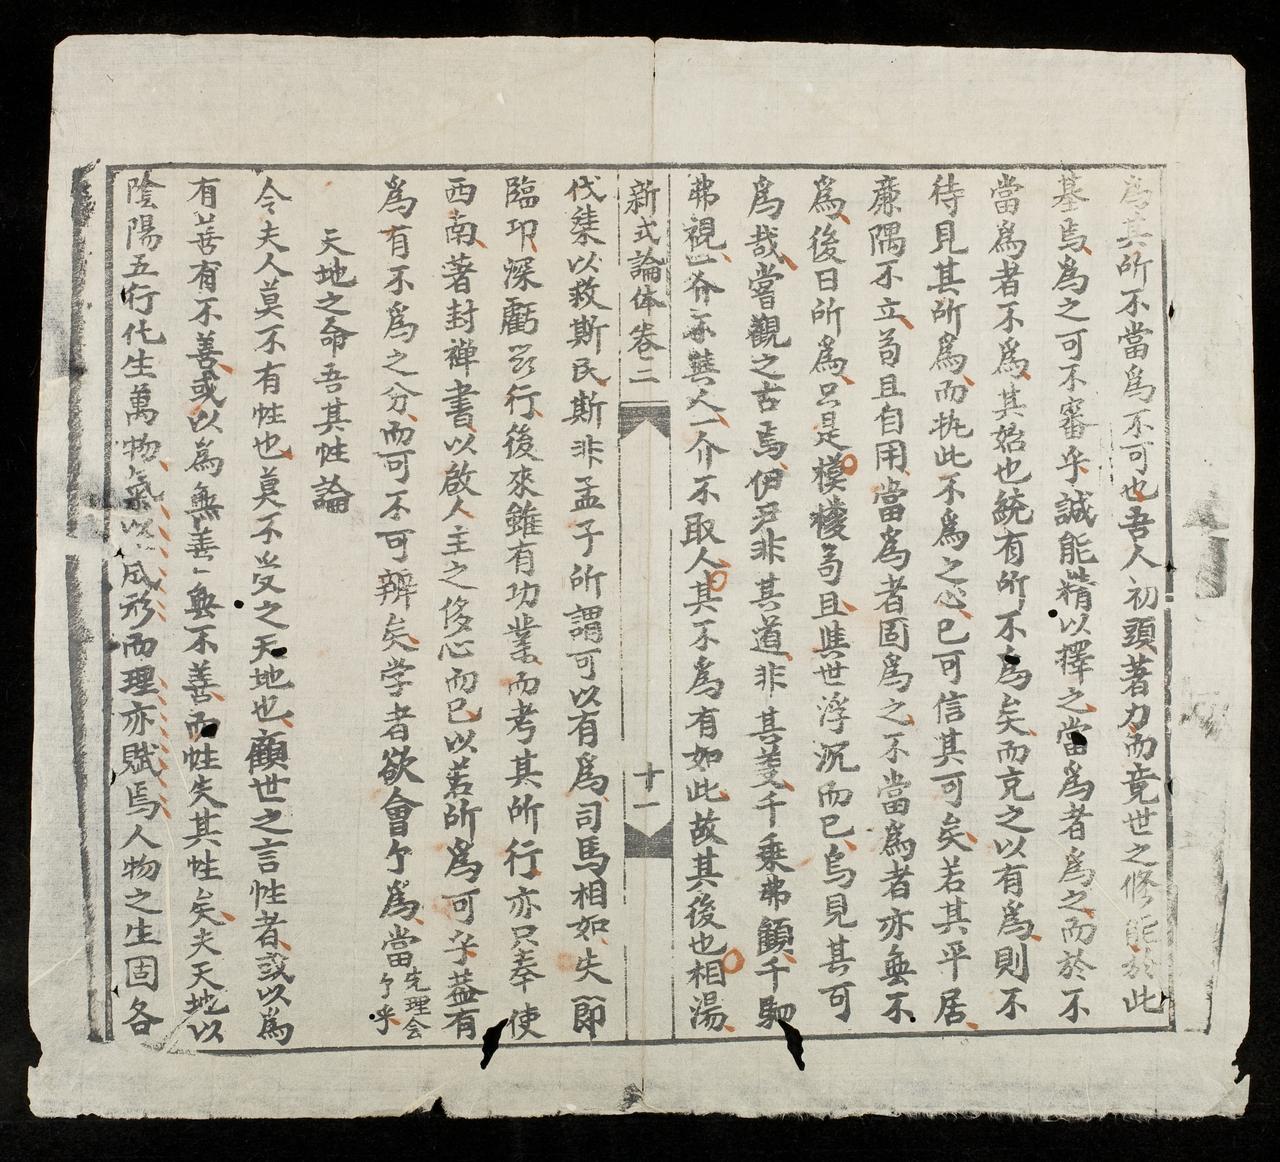 為其所不當爲不可也吾人初頭著力而竟世之修能於此
基焉爲之可不審乎誠能精以擇之當爲者爲之而於不
當爲者不爲其始也統有所不爲矣而克之以有爲則不
待見其所爲而執此不爲之心已可信其可矣若其平居
廉隅不立苟且自用當爲者固爲之不當爲者亦無不
爲後日所爲只是模棱苟且與世浮沉而已烏見其可
爲哉嘗觀之古焉伊尹非其道非其義千乗弗顧千駟
弗視一介不與人一介不取人其不爲有如此故其後也相湯
新式論体卷二 十一
伐桀以救斯民斯非孟子所謂可以有爲司馬相如失節
臨邛深虧行後來雖有功業而考其所行亦只奉使
西南著封禅書以啟人主之侈心而已以若所爲可乎蓋有
爲有不爲之分而可不可辨矣学者欲會乎爲當先理会乎
天地之命吾其性論
今夫人莫不有性也莫不受之天地也顧世之言性者或以爲
有善有不善或以爲無善無不善而性失其性矣夫天地以
陰陽五行化生萬物氣以成形而理亦賦焉人物之生固各